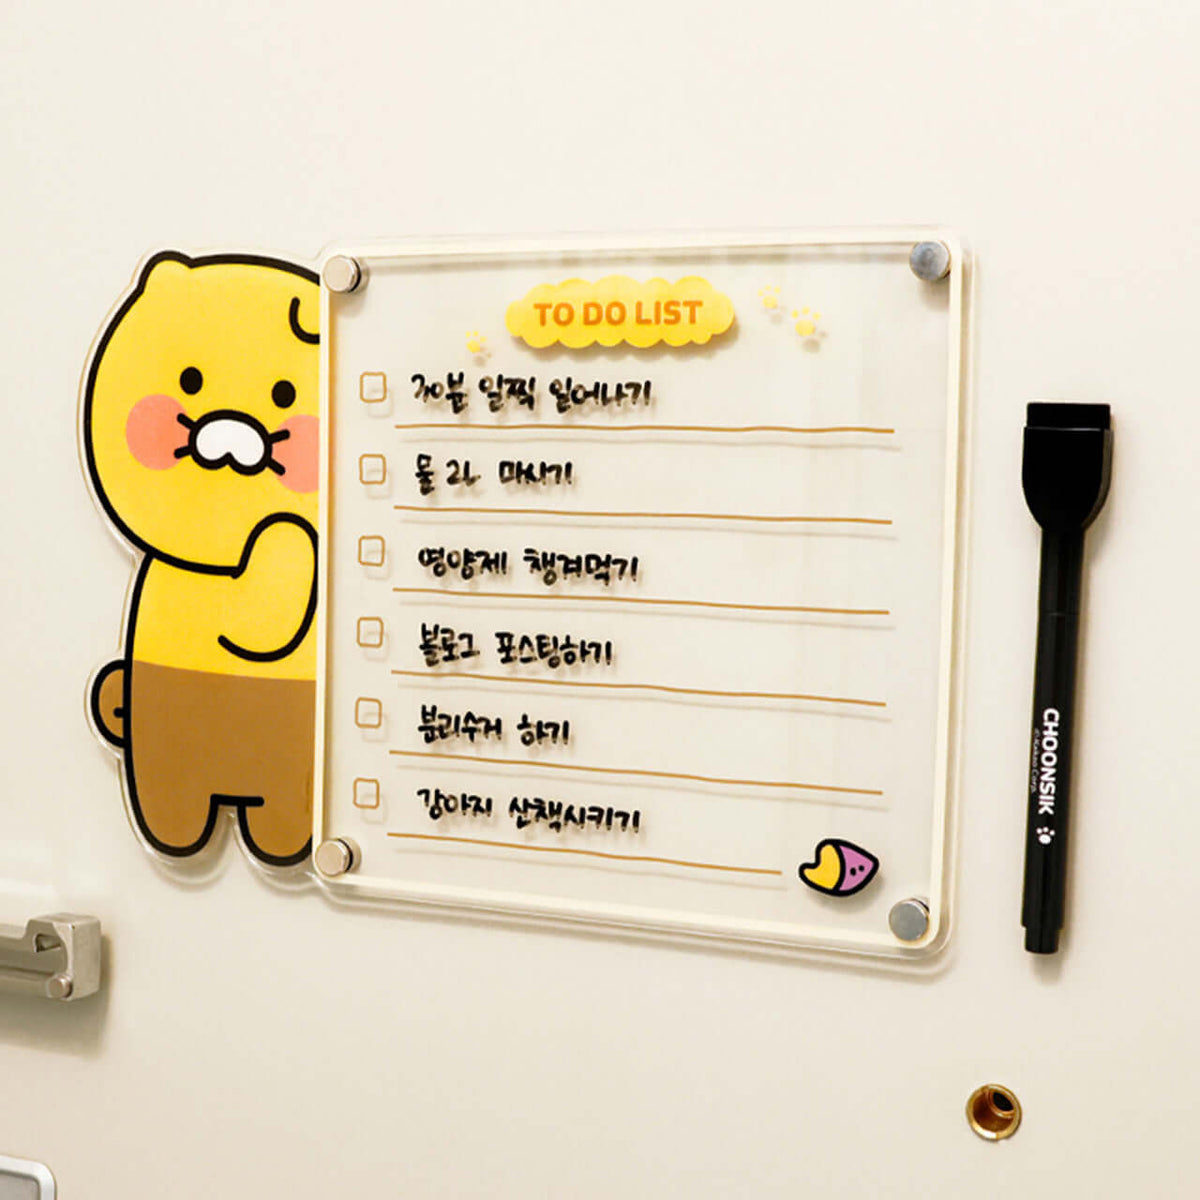 TO DO LIST
30분 일찍 일어나기
물 2L 마시기
영양제 챙겨먹기
블로그 포스팅하기
분리수거 하기
강아지 산책시키기
CHOONSIK
©Kakao Corp.